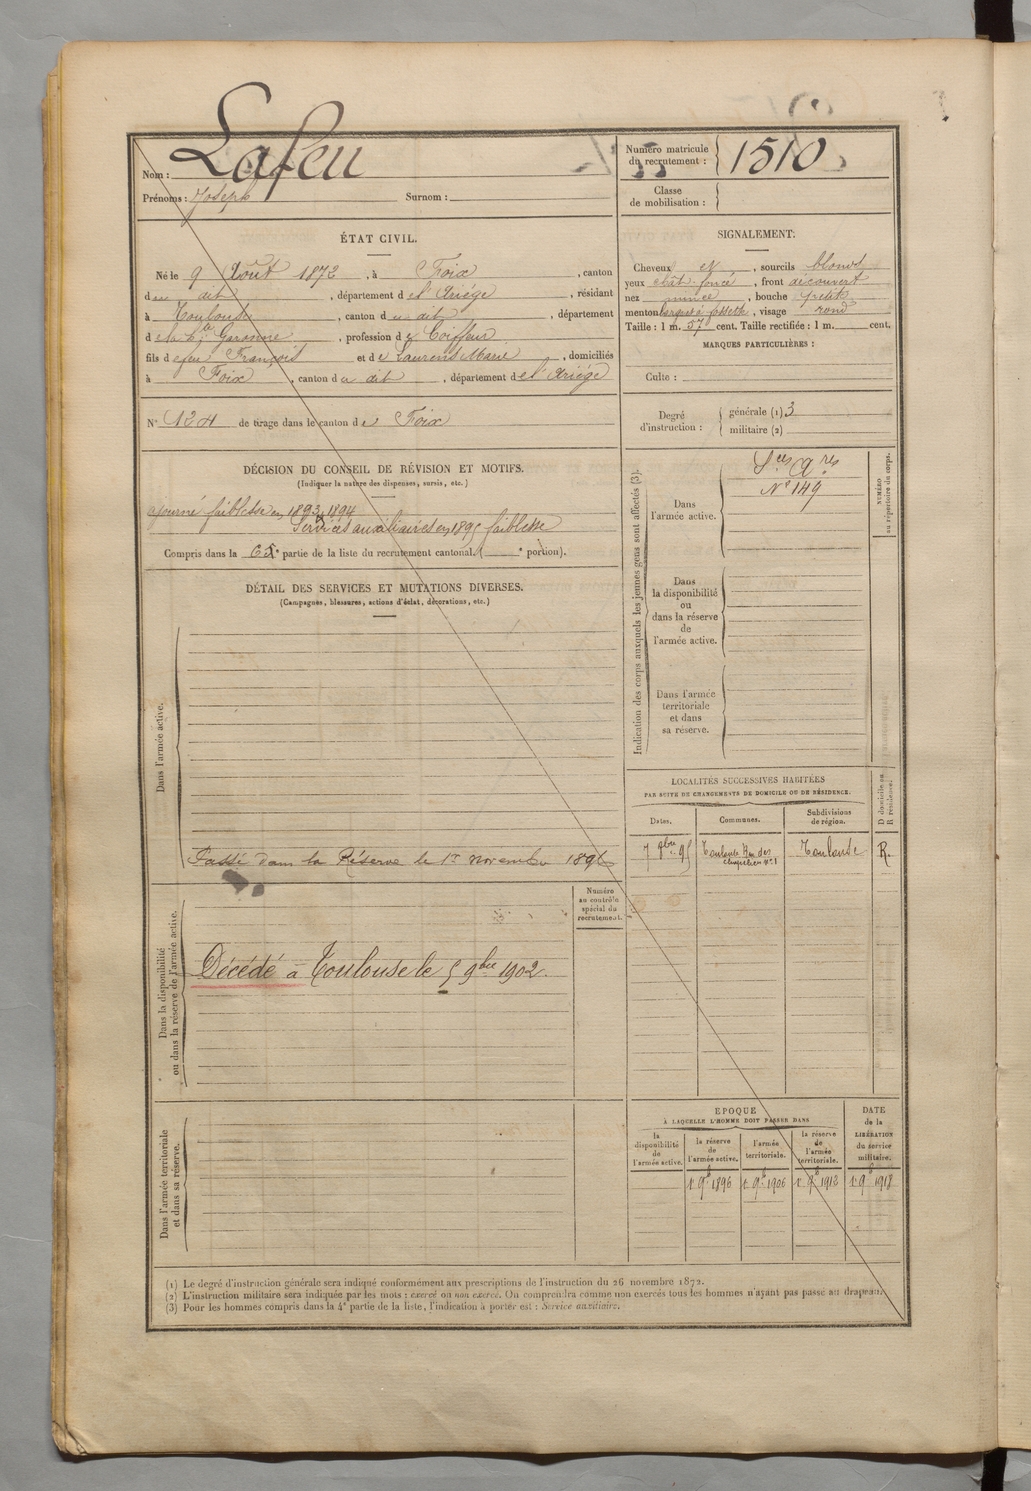 Nom : Lafeu
Prénoms : Joseph Surnom :
Numéro matricule du recrutement : 1510
Classe de mobilisation :
ÉTAT CIVIL.
Né le 9 Août 1872, à Foix, canton
du dit, département de l'Ariége, résidant
à Toulouse, canton du dit, département
de la hte Garonne, profession de Coiffeur
fils de feu François et de Laurens Marie, domiciliés
à Foix, canton du dit, département de l'Ariége
N° 124 de tirage dans le canton de Foix
SIGNALEMENT.
Cheveux et, sourcils blonds
yeux chât. foncé, front découvert
nez mince, bouche petite
menton à fossette, visage rond
Taille : 1 m. 57 cent. Taille rectifiée : 1 m. cent.
MARQUES PARTICULIÈRES :
Culte :
Degré d'instruction : générale (1) 3
militaire (2)
DÉCISION DU CONSEIL DE RÉVISION ET MOTIFS.
(Indiquer la nature des dispenses, sursis, etc.)
ajourné faiblesse en 1893, 1894
Services auxiliaires en 1895 faiblesse
Compris dans la partie de la liste du recrutement cantonal. ( e portion).
DÉTAIL DES SERVICES ET MUTATIONS DIVERSES.
(Campagnes, blessures, actions d'éclat, décorations, etc.)
Dans l'armée active.
Passé dans la Réserve le 1er novembre 1896
Dans la disponibilité
ou dans la réserve de l'armée active.
Numéro
au contrôle
spécial du
recrutement.
Décédé à Toulouse le 5 9bre 1902.
Dans l'armée territoriale
et dans sa réserve.
Indication des corps auxquels les jeunes gens sont affectés (3).
NUMÉRO
au répertoire du corps.
Dans
l'armée active.
Ses Ares
N° 149
Dans
la disponibilité
ou
dans la réserve
de
l'armée active.
Dans l'armée
territoriale
et dans
sa réserve.
LOCALITÉS SUCCESSIVES HABITÉES
PAR SUITE DE CHANGEMENTS DE DOMICILE OU DE RÉSIDENCE.
D domicile ou
R résidence.
Dates. Communes. Subdivisions de région.
7 9bre 95 Toulouse Rue des Toulouse R.
n° 1
EPOQUE
À LAQUELLE L'HOMME DOIT PASSER DANS
la disponibilité de l'armée active.
la réserve de l'armée active.
l'armée territoriale.
la réserve de l'armée territoriale.
DATE de la LIBÉRATION du service militaire.
1r 9b 1896 1r 9b 1906 1r 9b 1912 1r 9b 1918
(1) Le degré d'instruction générale sera indiqué conformément aux prescriptions de l'instruction du 26 novembre 1872.
(2) L'instruction militaire sera indiquée par les mots : exercé ou non exercé. On comprendra comme non exercés tous les hommes n'ayant pas passé au drapeau.
(3) Pour les hommes compris dans la 4e partie de la liste, l'indication à porter est : Service auxiliaire.